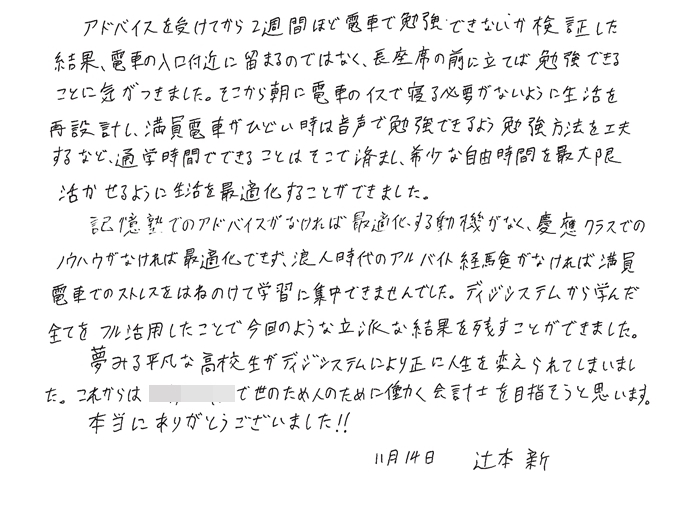 アドバイスを受けてから2週間ほど電車で勉強できないか検証した
結果、電車の入口付近に留まるのではなく、長座席の前に立てば勉強できる
ことに気がつきました。そこから朝に電車のイスで寝る必要がないように生活を
再設計し、満員電車がひどい時は音声で勉強できるよう勉強方法を工夫
するなど、通学時間でできることはそこで済まし、希少な自由時間を最大限
活かせるように生活を最適化することができました。
記憶塾でのアドバイスがなければ最適化する動機がなく、慶應クラスでの
ノウハウがなければ最適化できず、浪人時代のアルバイト経験がなければ満員
電車でのストレスをはねのけて学習に集中できませんでした。ディジシステムから学んだ
全てをフル活用したことで今回のような立派な結果を残すことができました。
夢みる平凡な高校生がディジシステムにより正に人生を変えられてしまいまし
た。これからは で世のため人のために働く会計士を目指そうと思います。
本当にありがとうございました!!
11月14日 辻本 新